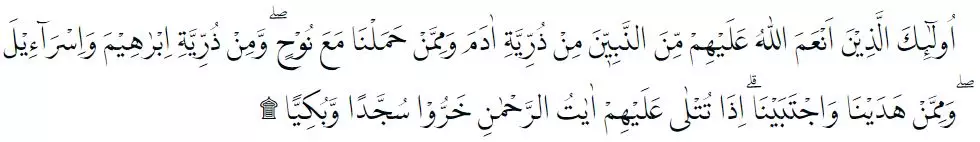 اُولٰۤىِٕكَ الَّذِيْنَ اَنْعَمَ اللّٰهُ عَلَيْهِمْ مِّنَ النَّبِيّٖنَ مِنْ ذُرِّيَّةِ اٰدَمَ وَمِمَّنْ حَمَلْنَا مَعَ نُوْحٍۖ وَّمِنْ ذُرِّيَّةِ اِبْرٰهِيْمَ وَاِسْرَاۤءِيْلَ
ۖوَمِمَّنْ هَدَيْنَا وَاجْتَبَيْنَاۗ اِذَا تُتْلٰى عَلَيْهِمْ اٰيٰتُ الرَّحْمٰنِ خَرُّوْا سُجَّدًا وَّبُكِيًّا ۩